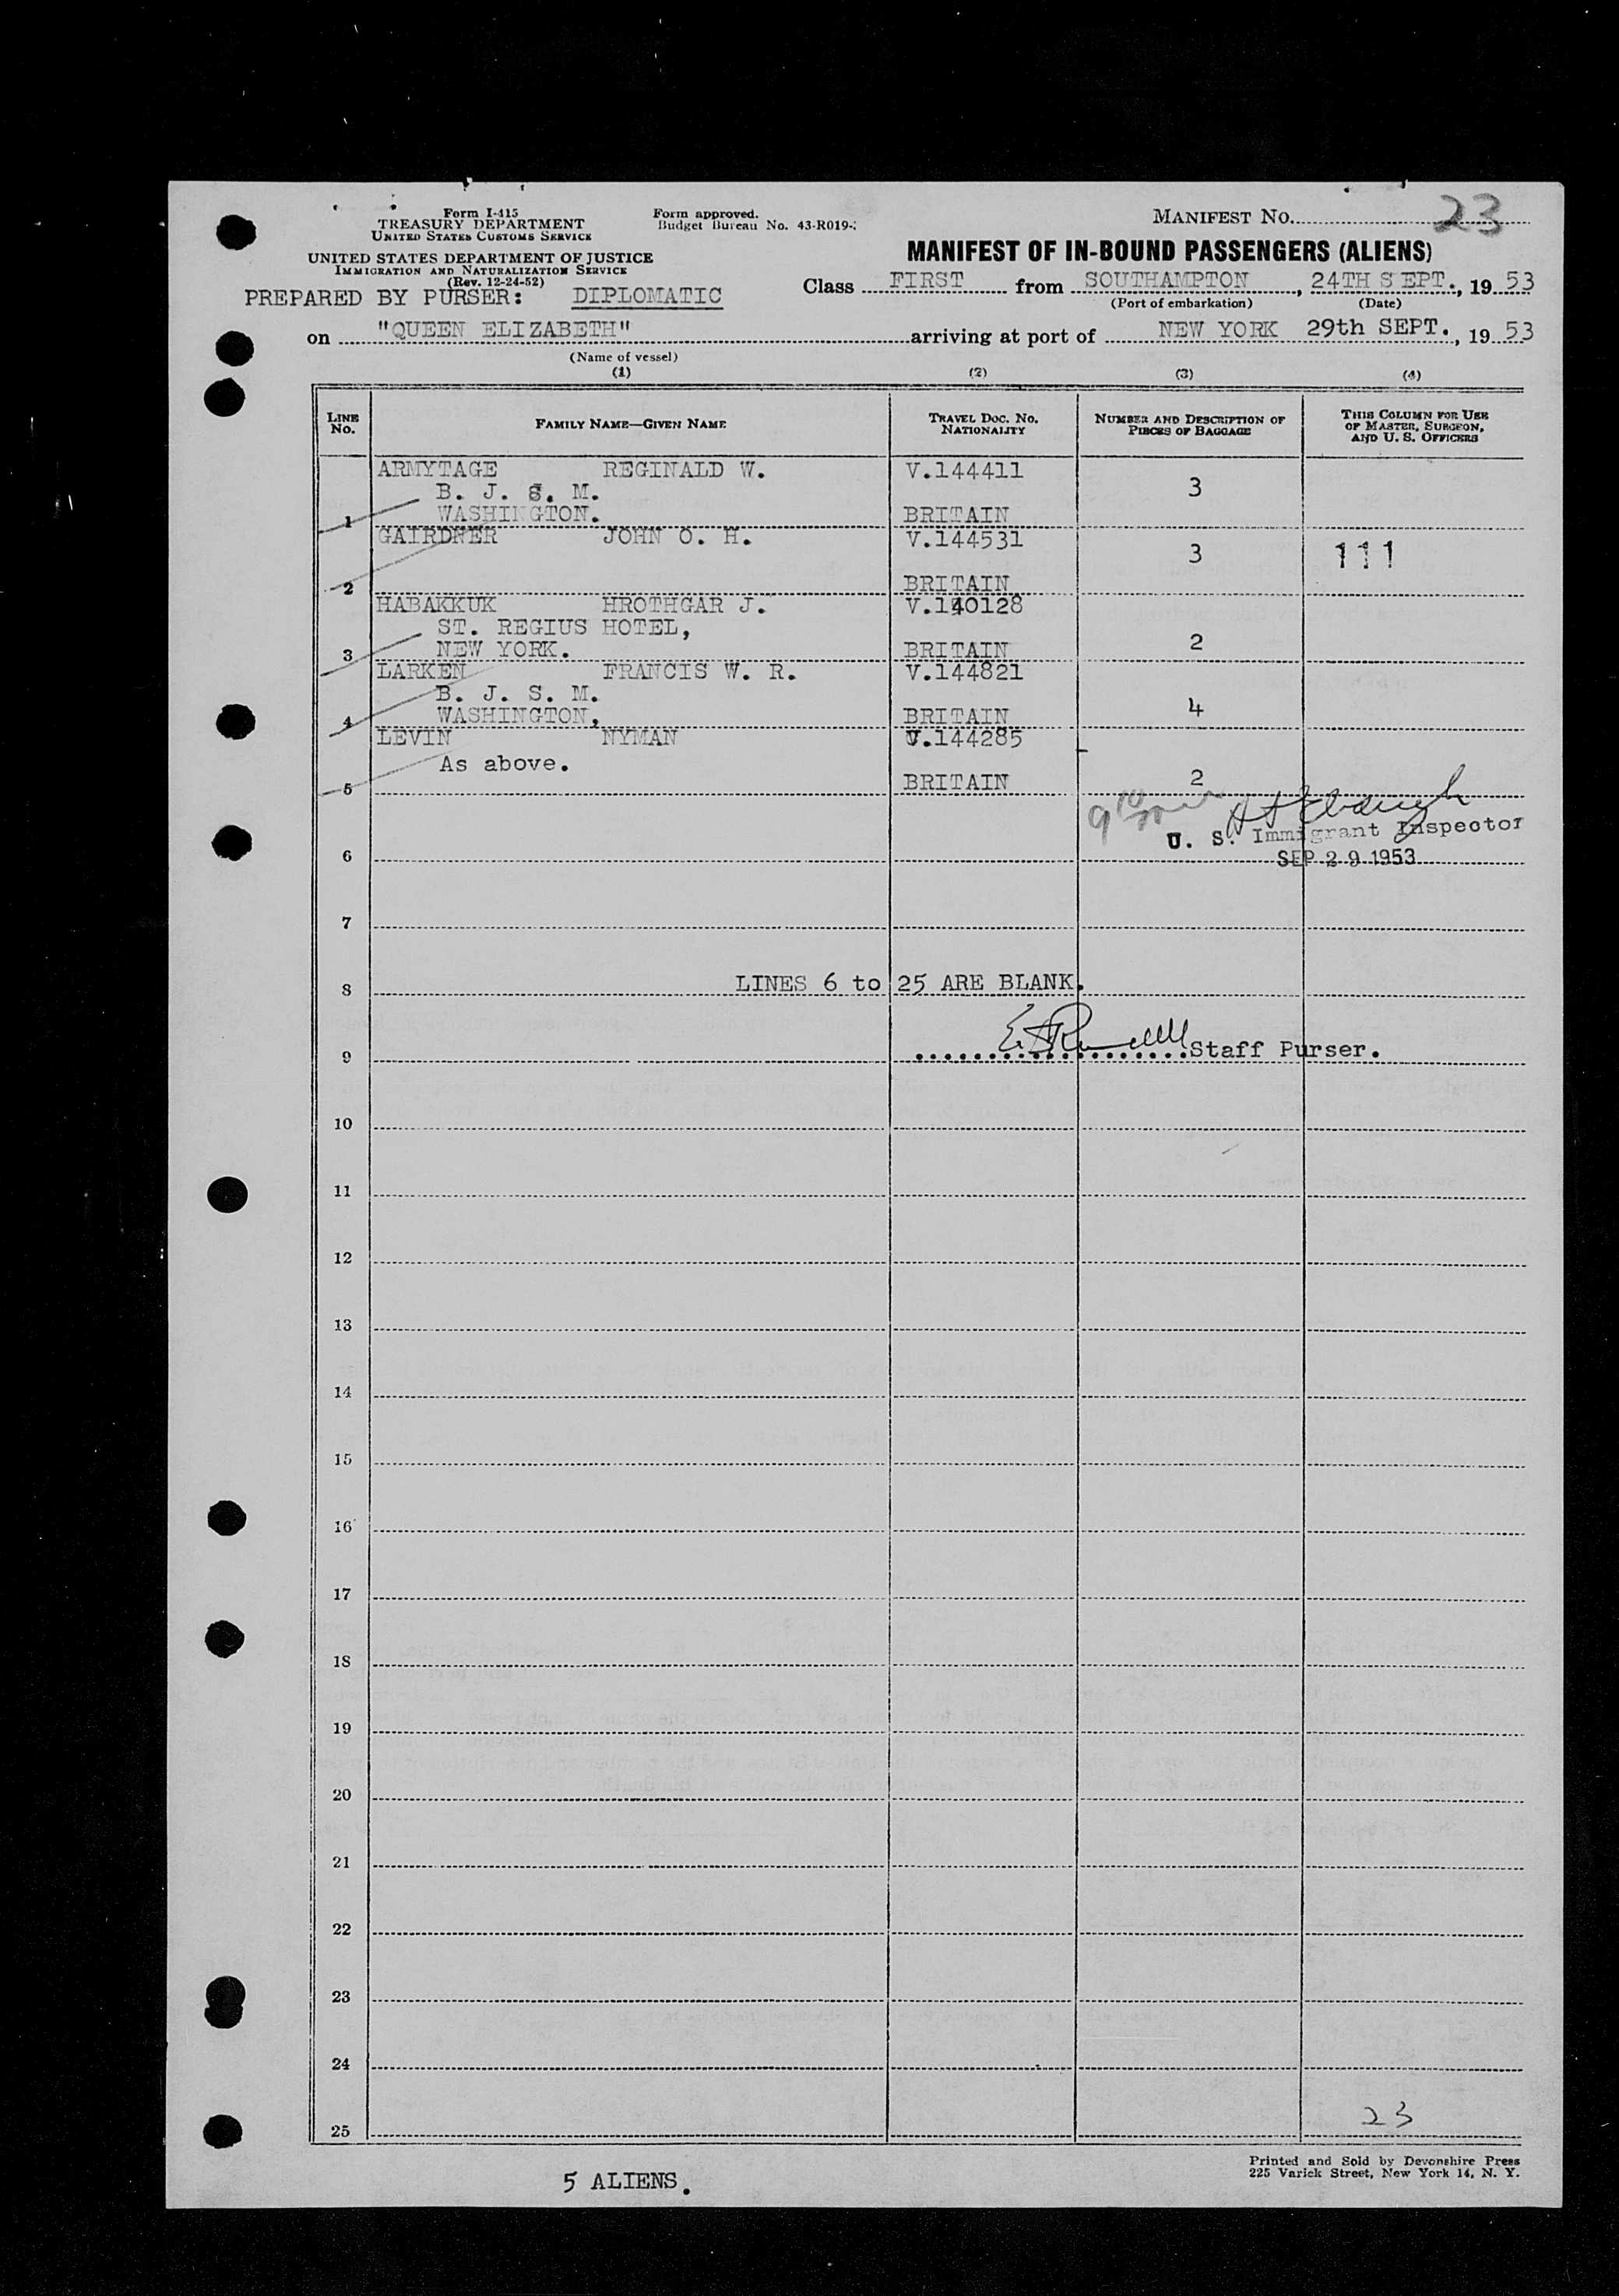 Form I-415
TREASURY DEPARTMENT
UNITED STATES CUSTOMS SERVICE
Form approved.
Budget Bureau No. 43-R019-
MANIFEST NO. 23
UNITED STATES DEPARTMENT OF JUSTICE
IMMIGRATION AND NATURALIZATION SERVICE
(Rev. 12-24-52)
MANIFEST OF IN-BOUND PASSENGERS (ALIENS)
PREPARED BY PURSER: DIPLOMATIC
Class FIRST from SOUTHAMPTON, 24TH SEPT., 19 53
(Port of embarkation) (Date)
on "QUEEN ELIZABETH" arriving at port of NEW YORK 29th SEPT., 19 53
(Name of vessel)
(1) (2) (3) (4)
LINE NO.
FAMILY NAME—GIVEN NAME
TRAVEL DOC. NO.
NATIONALITY
NUMBER AND DESCRIPTION OF
PIECES OF BAGGAGE
THIS COLUMN FOR USE
OF MASTER, SURGEON,
AND U. S. OFFICERS
ARMYTAGE REGINALD W. V.144411
B. J. S. M. 3
1 WASHINGTON. BRITAIN
GAIRDNER JOHN O. H. V.144531
3 111
2 BRITAIN
HABAKKUK HROTHGAR J. V.140128
ST. REGIUS HOTEL,
3 NEW YORK. BRITAIN 2
LARKEN FRANCIS W. R. V.144821
B. J. S. M.
4 WASHINGTON, BRITAIN 4
LEVIN NYMAN V.144285
As above.
5 BRITAIN 2
U. S. Immigrant Inspector
6 SEP 29 1953
7
8 LINES 6 to 25 ARE BLANK.
9 Staff Purser.
10
11
12
13
14
15
16
17
18
19
20
21
22
23
24
23
25
Printed and Sold by Devonshire Press
225 Varick Street, New York 14, N. Y.
5 ALIENS.